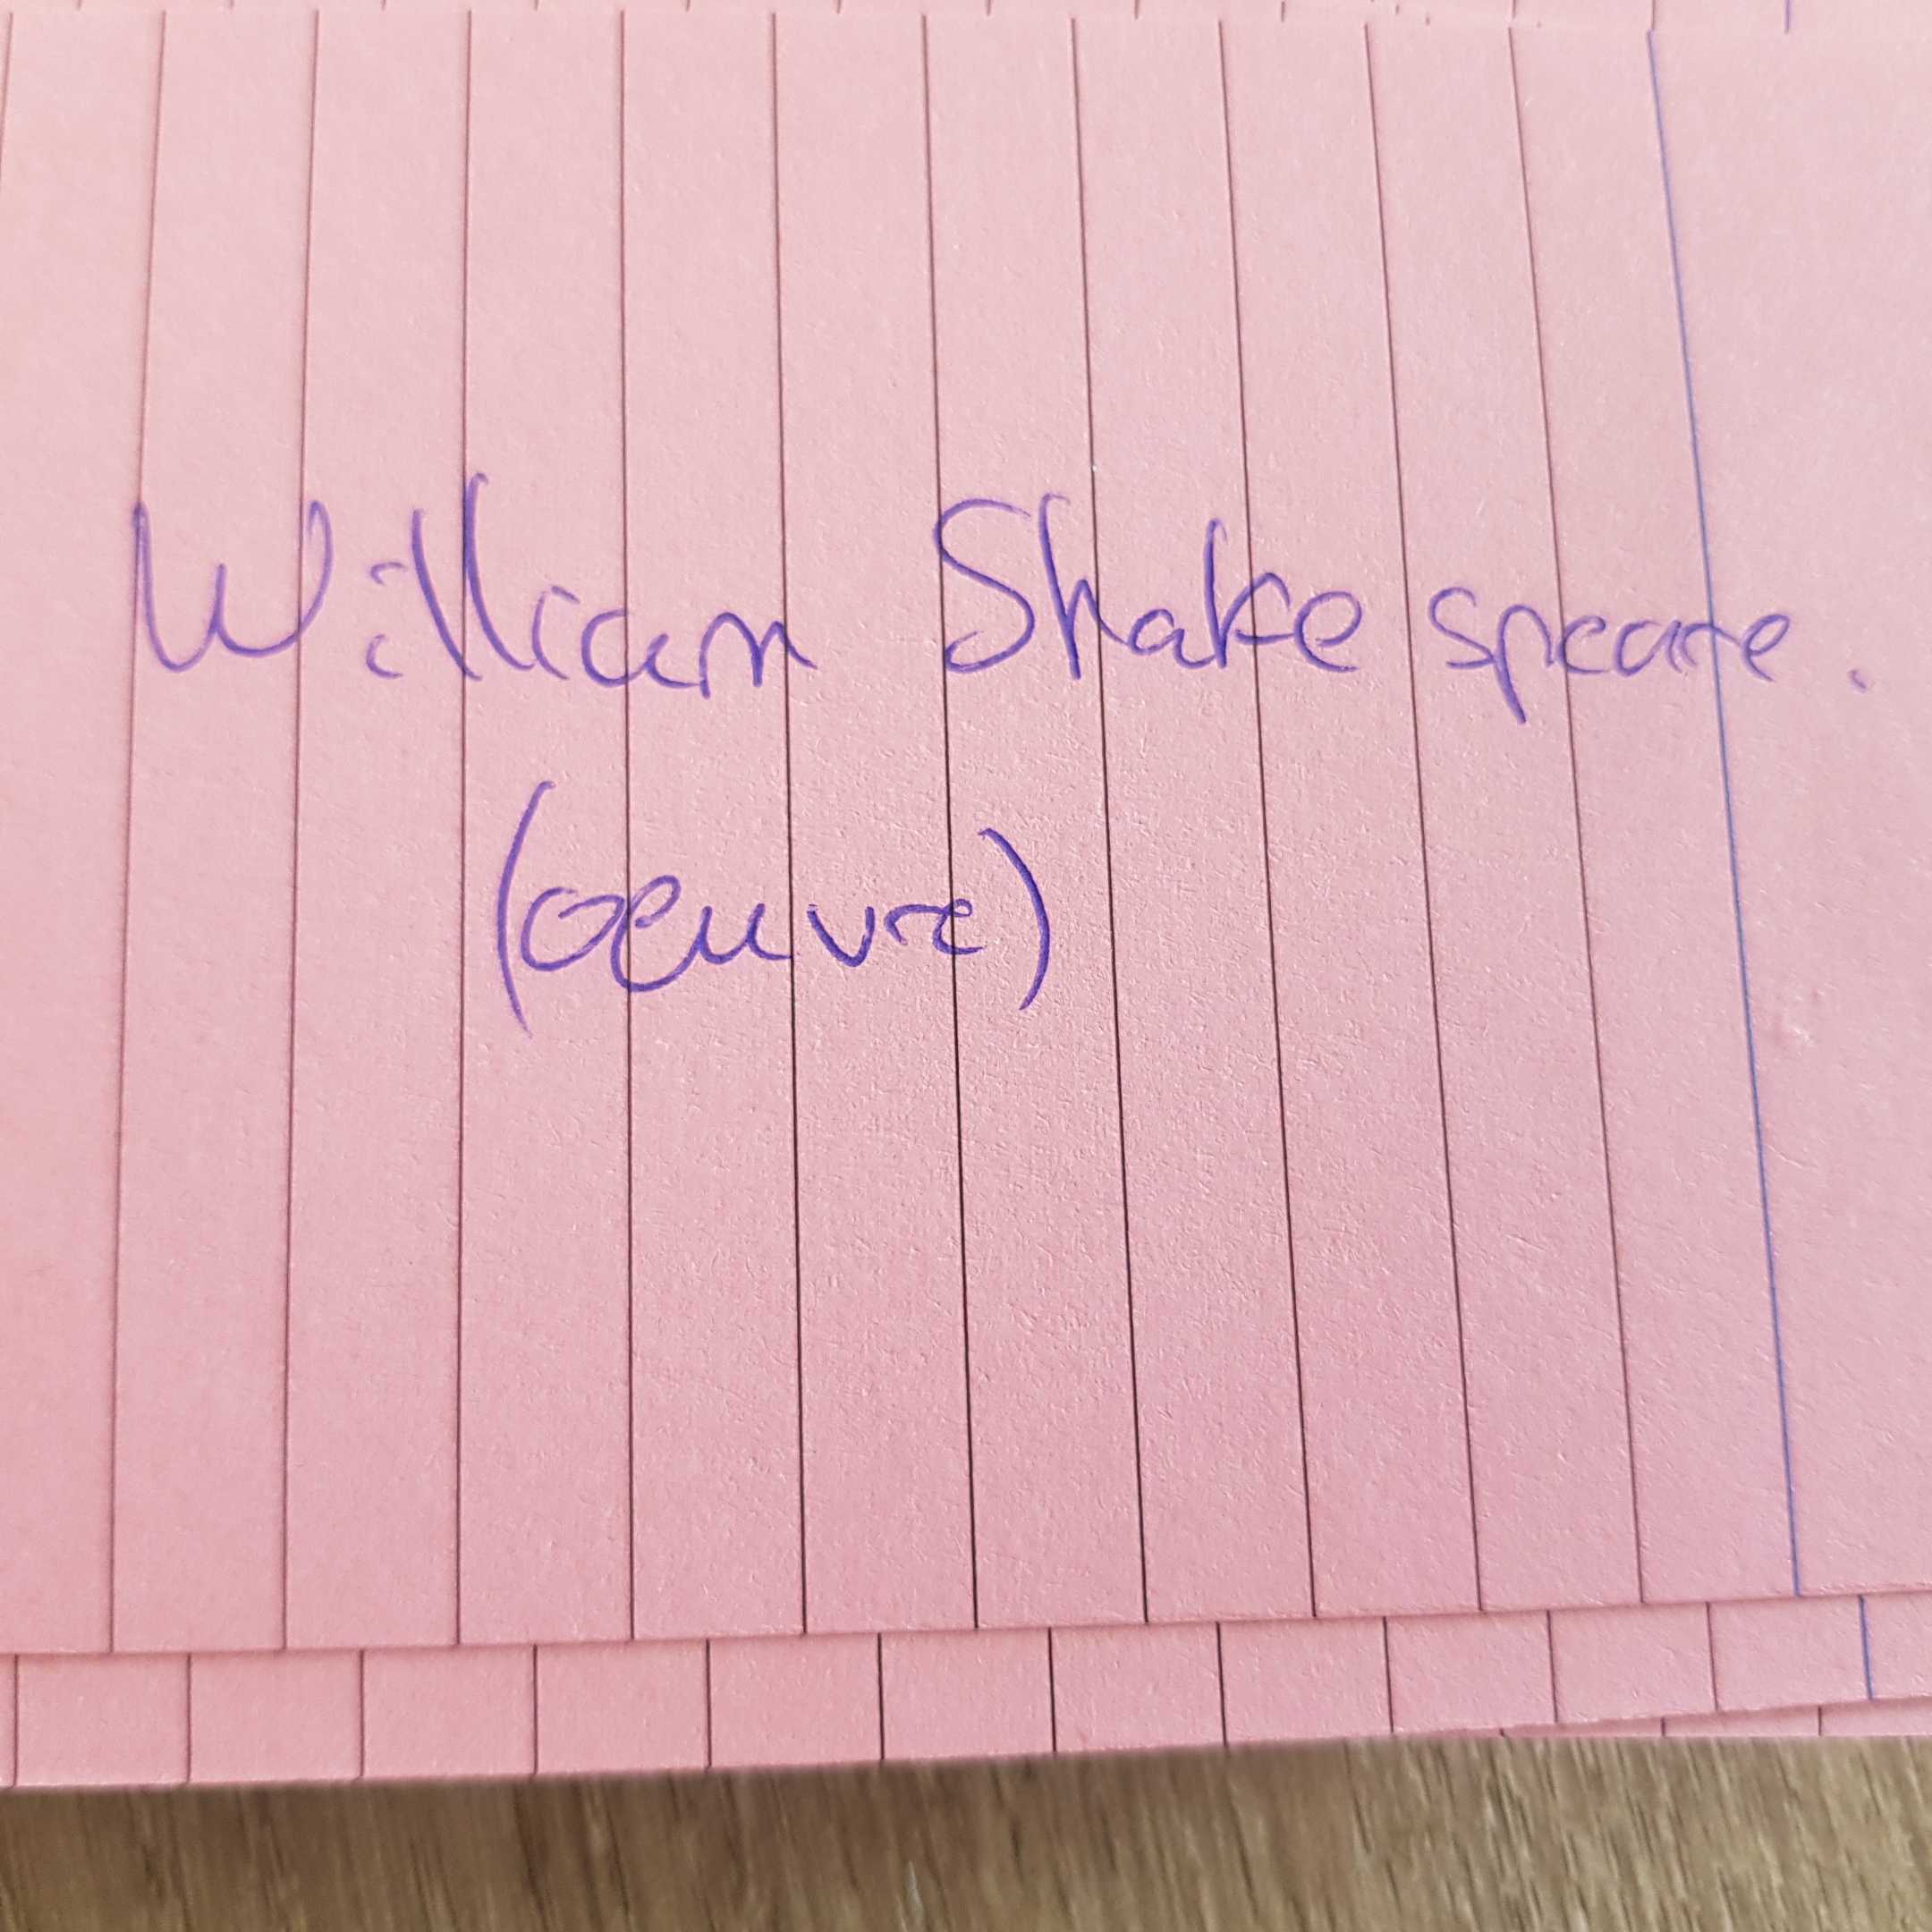 William Shakespeare.
(oeuvre)